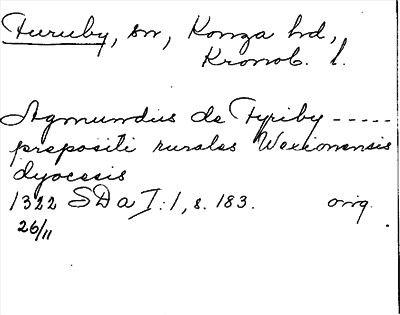 Furuby, sn, Konga hd,
Kronob. l.
Agmundus de Fyriby -----
prepositi rurales Wexionensis
dyocesis
1322 SD a I:1, s. 183. orig.
26/11